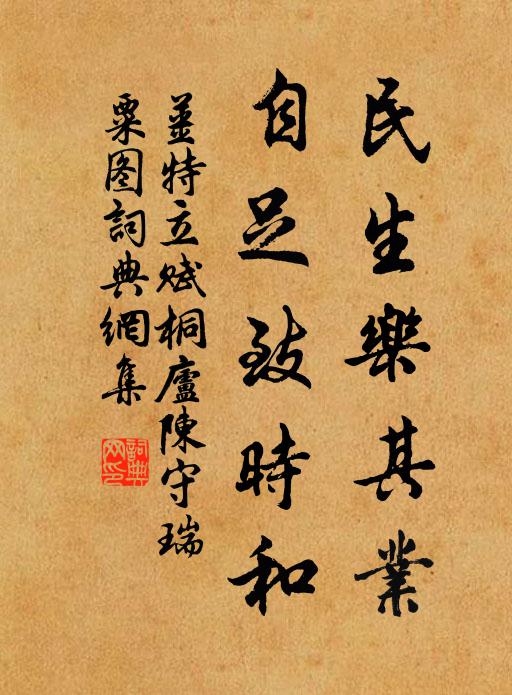 民生樂其業
自足致時和
姜特立賦桐廬陳守瑞
粟图詞典網集
詞典
网印